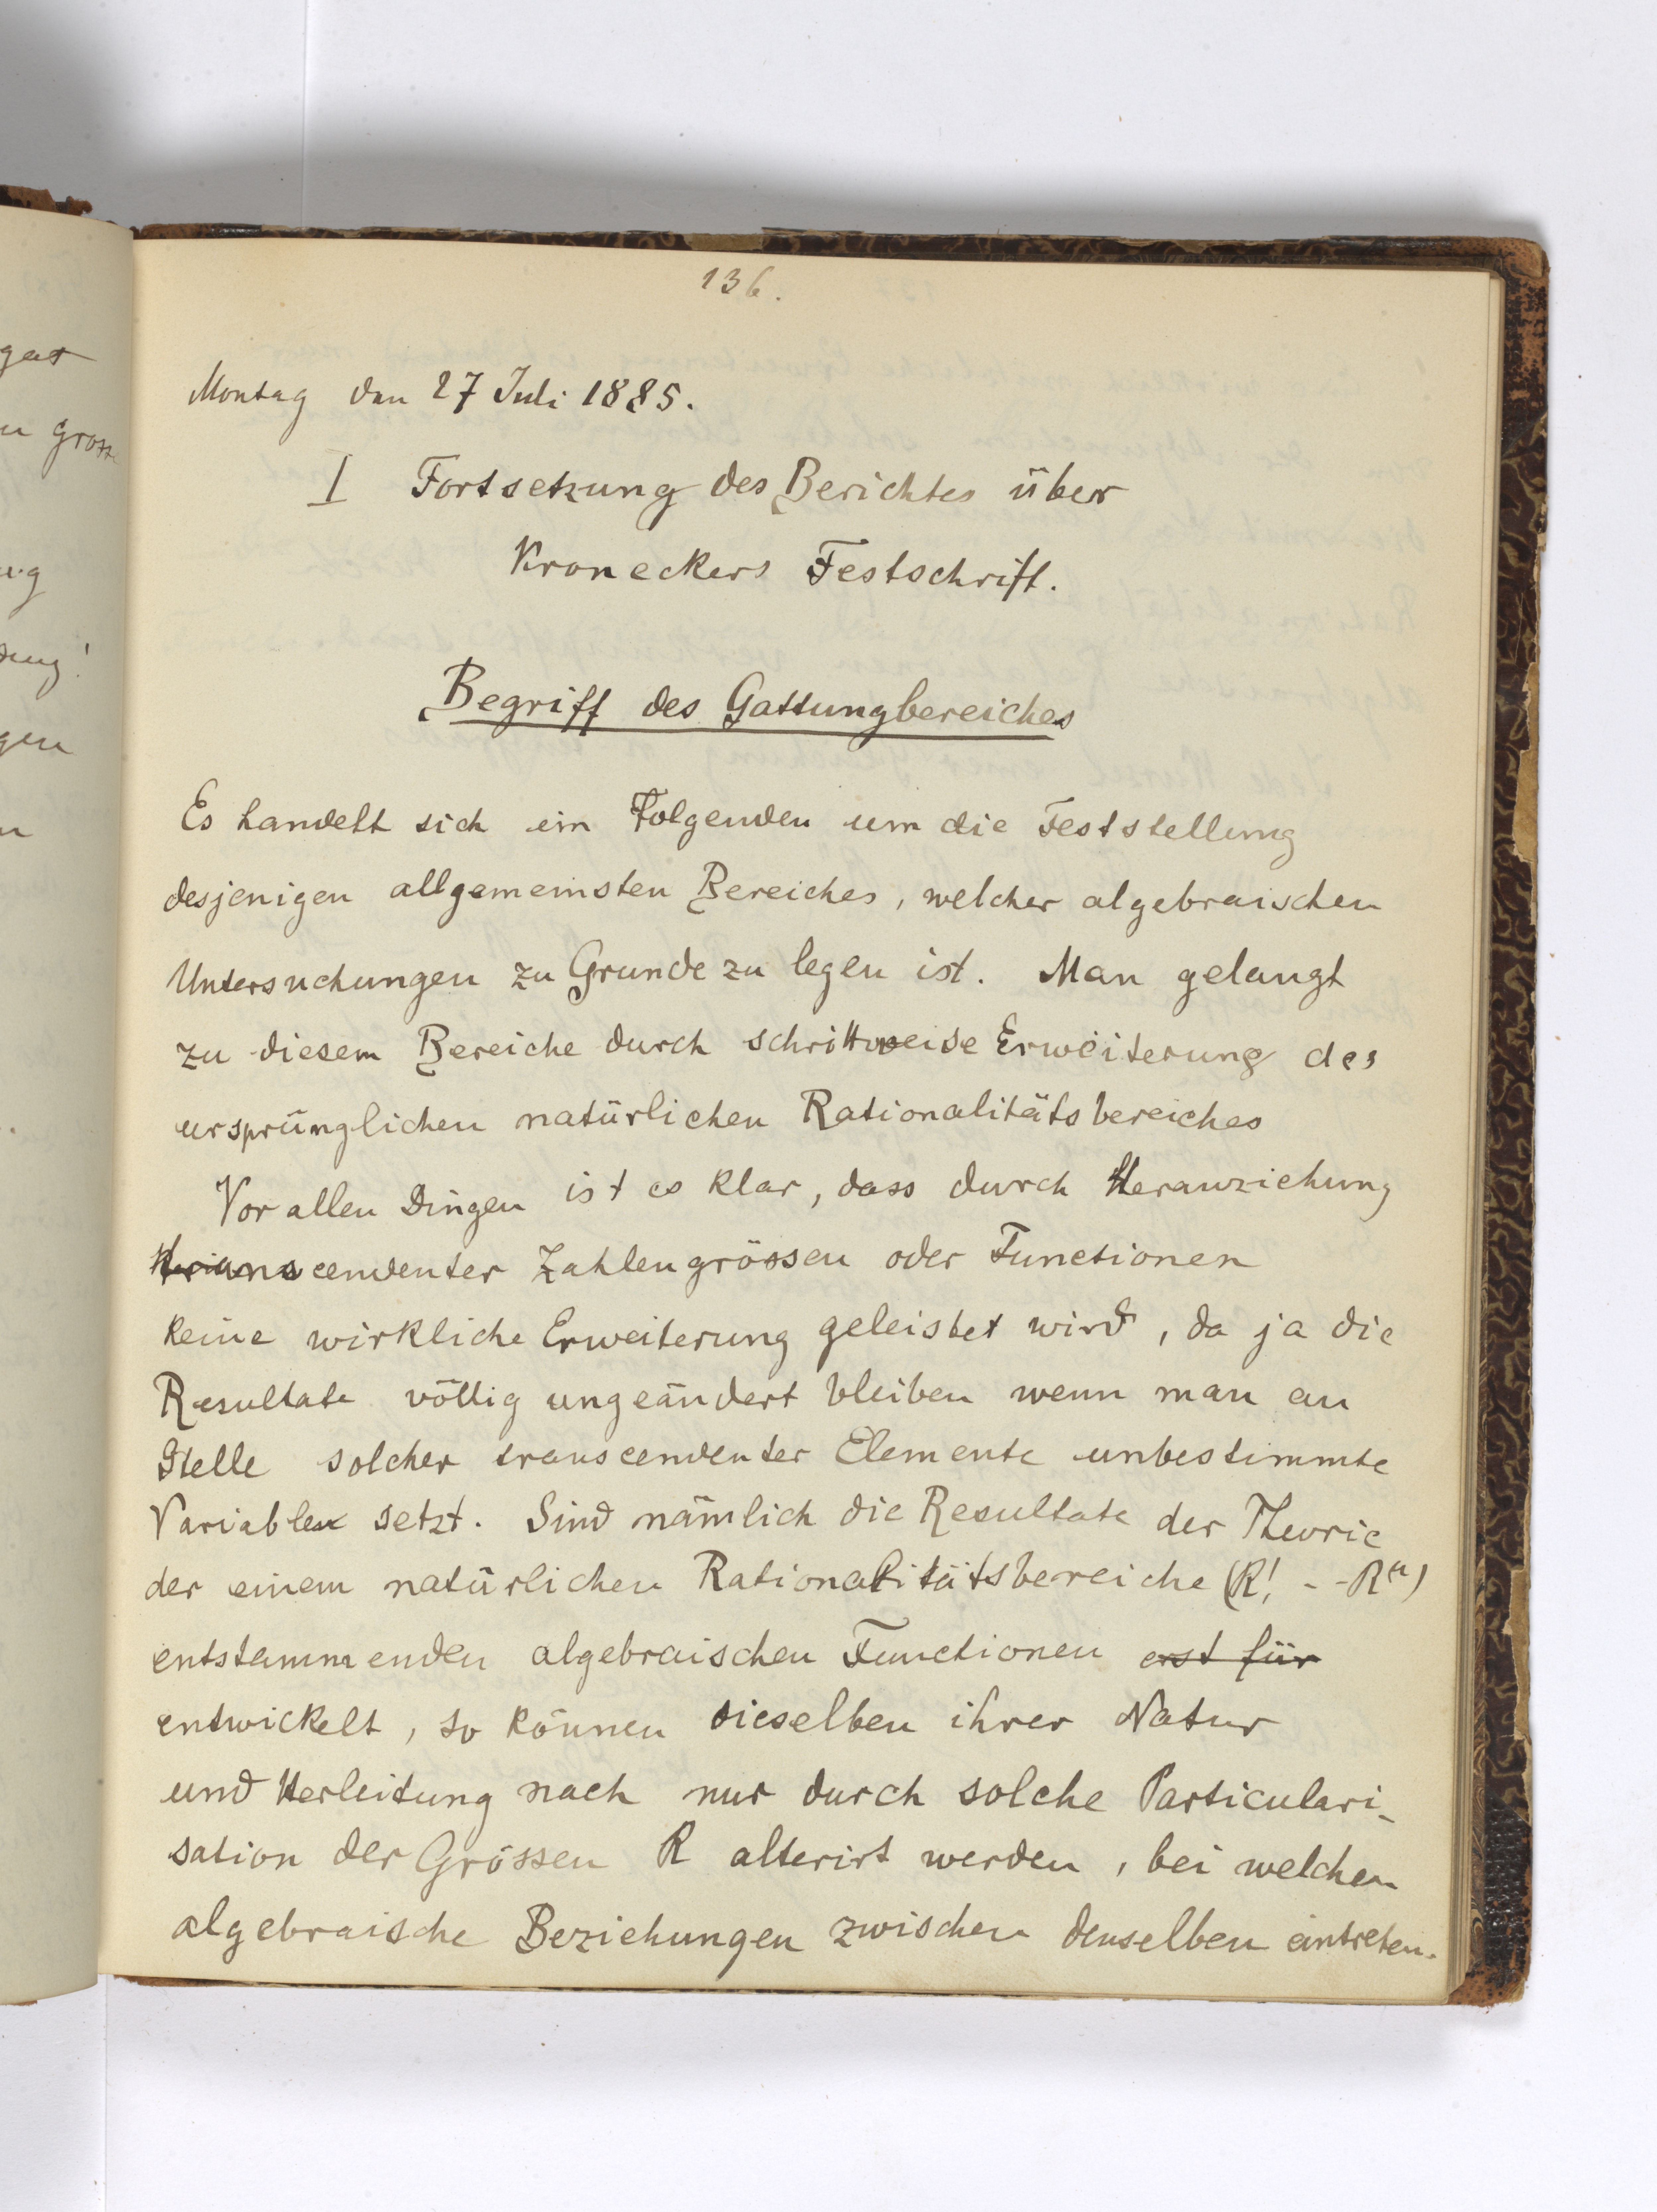 gat
n gross
ung
dung!
gen
n
136.
Montag den 27 Juli 1885.
I Fortsetzung des Berichtes über
Kroneckers Festschrift.
Begriff des Gattungbereiches
Es handelt sich im Folgenden um die Feststellung
desjenigen allgemeinsten Bereiches, welcher algebraischen
Untersuchungen zu Grunde zu legen ist. Man gelangt
zu diesem Bereiche durch schrittweise Erweiterung des
ursprünglichen natürlichen Rationalitätsbereiches
Vor allen Dingen ist es klar, dass durch Heranziehung
transcendenter Zahlengrössen oder Functionen
keine wirkliche Erweiterung geleistet wird, da ja die
Resultate völlig ungeändert bleiben wenn man an
Stelle solcher transcendenter Elemente unbestimmte
Variablen setzt. Sind nämlich die Resultate der Theorie
der einem natürlichen Rationalitätsbereiche (R', - - R⁽ⁿ⁾)
entstammenden algebraischen Functionen erst für
entwickelt, so können dieselben ihrer Natur
und Herleitung nach nur durch solche Particulari-
sation der Grössen R alterirt werden, bei welchen
algebraische Beziehungen zwischen denselben eintreten.